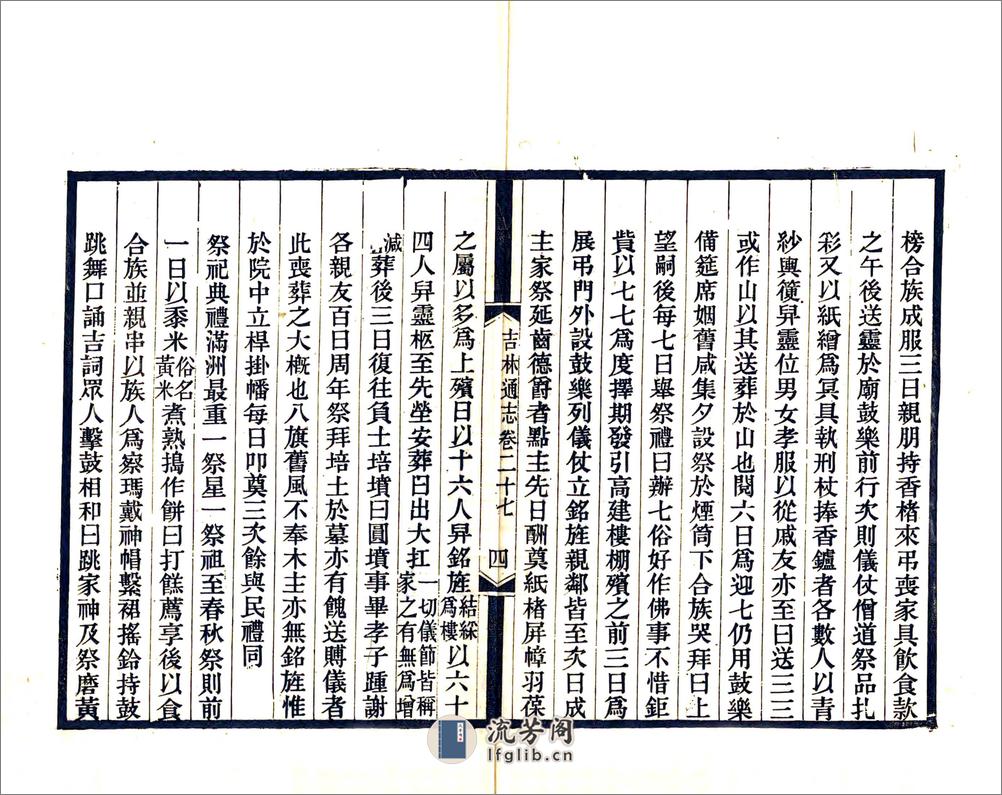 榜合族成服三日親朋持香楮來弔喪家具飲食款
之午後送靈於廟鼓樂前行次則儀仗僧道祭品扎
彩又以紙繪爲冥具執刑杖捧香鑪者各數人以青
紗輿籠舁靈位男女孝服以從戚友亦至曰送三三
或作山以其送葬於山也閱六日爲迎七仍用鼓樂
備筵席姻舊咸集夕設祭於煙筒下合族哭拜曰上
望嗣後每七日舉祭禮曰辦七俗好作佛事不惜鉅
貲以七七爲度擇期發引高建樓棚殯之前三日爲
展弔門外設鼓樂列儀仗立銘旌親鄰皆至次日成
主家祭延齒德爵者點主先日酬奠紙楮屏幛羽葆
吉林通志卷二十七 四
之屬以多爲上殯日以十六人舁銘旌結綵爲樓以六十
四人舁靈柩至先塋安葬曰出大扛一切儀節皆稱家之有無爲增
減葬後三日復往負土培墳曰圓墳事畢孝子踵謝
各親友百日周年祭拜培土於墓亦有餽送賻儀者
此喪葬之大概也八旗舊風不奉木主亦無銘旌惟
於院中立桿掛幡每日叩奠三次餘與民禮同
祭祀典禮滿洲最重一祭星一祭祖至春秋祭則前
一日以黍米俗名黃米煮熟搗作餅曰打餻薦享後以食
合族並親串以族人爲察瑪戴神帽繫裙搖鈴持鼓
跳舞口誦吉詞眾人擊鼓相和曰跳家神及祭磨黃
流芳阁
lfglib.cn